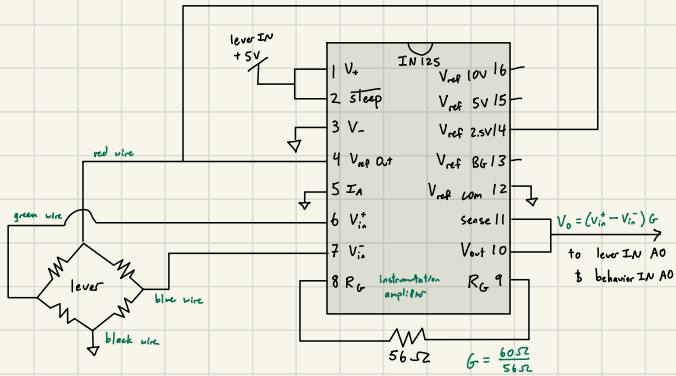 lever IN
+5V
IN 125
1 V+
2 sleep
3 V-
4 Vref Out
5 IA
6 Vin+
7 Vin-
8 RG
Vref 10V 16
Vref 5V 15
Vref 2.5V 14
Vref BG 13
Vref com 12
sense 11
Vout 10
RG 9
instrumutation
amplifier
red wire
green wire
lever
blue wire
black wire
56Ω
G = 60Ω/56Ω
Vo = (Vin+ - Vin-) G
to lever IN AO
& behavior IN AO